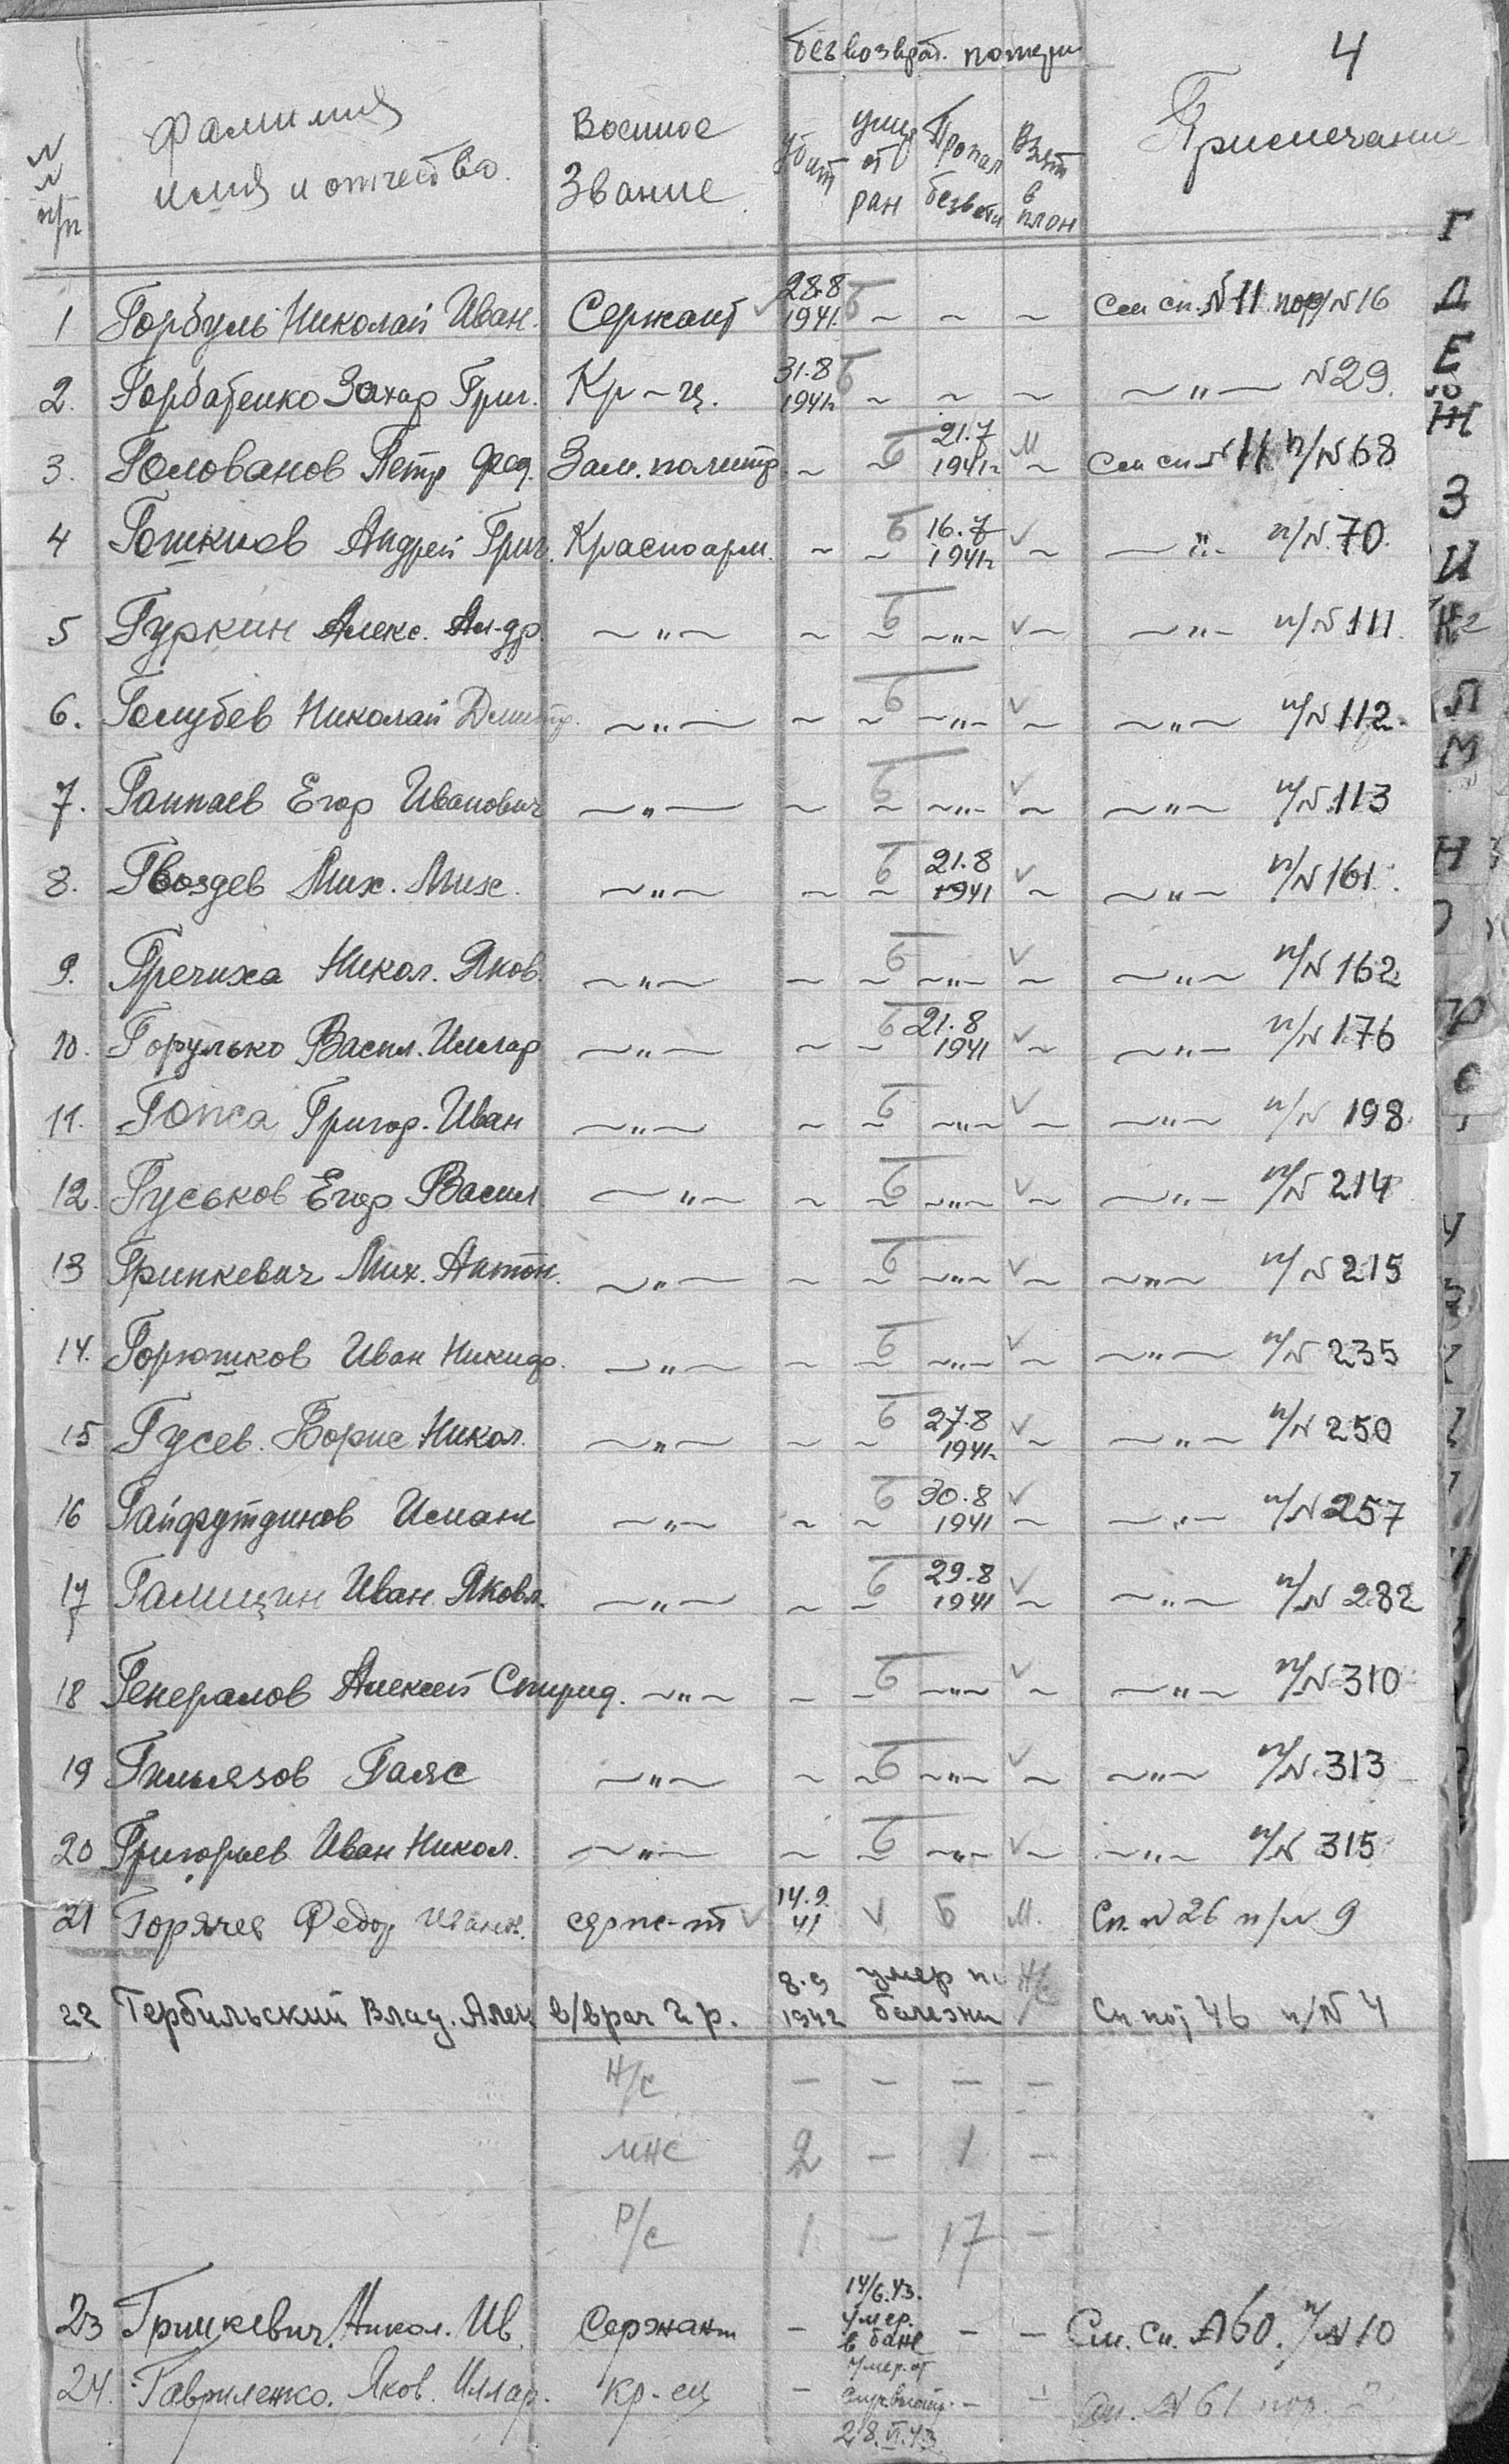 4
безвозврат. потери
№ № п/п
Фамилия имя и отчество
Военное Звание
Убит
умер от ран
Пропал без вести
Взят в плен
Примечание
1 Горбуль Николай Иван. Сержант 28.8 1941. Б ~ ~ ~ См сп. №11 пор/№16
2. Горбатенко Захар Григ. Кр-ц. 31.8 1941г Б ~ ~ ~ ~"~ №29.
3. Голованов Петр Фед. Зам. политр ~ ~ Б 21.7 1941г М ~ См сп №11 п/№68
4 Гошков Андрей Григ. Красноарм. ~ ~ Б 16.7 1941г ~ ~"~ п/№70.
5 Гуркин Алекс. Ал-др. ~"~ ~ ~ Б ~"~ ~ ~"~ п/№111.
6. Голубев Николай Дмитр. ~"~ ~ ~ Б ~"~ ~ ~"~ п/№112.
7. Егор Иванович ~"~ ~ ~ Б ~"~ ~ ~"~ п/№113
8. Гвоздев Мих. Мих. ~"~ ~ ~ Б 21.8 1941 ~ ~"~ п/№161.
9. Гречиха Никол. Яков. ~"~ ~ ~ Б ~"~ ~ ~"~ п/№162
10. Горулько Васил. ~"~ ~ ~ Б 21.8 1941 ~ ~"~ п/№176
11. Гопса Григор. Иван ~"~ ~ ~ Б ~"~ ~ ~"~ п/№198
12. Гуськов Егор Васил ~"~ ~ ~ Б ~"~ ~ ~"~ п/№214
13 Гринкевич Мих. Антон. ~"~ ~ ~ Б ~"~ ~ ~"~ п/№215
14. Горюшков Иван Никиф. ~"~ ~ ~ Б ~"~ ~ ~"~ п/№235
15 Гусев. Борис Никол. ~"~ ~ ~ Б 27.8 1941г ~ ~"~ п/№250
16 Гайфутдинов ~"~ ~ ~ Б 30.8 1941 ~ ~"~ п/№257
17 Галицин Иван Яковл. ~"~ ~ ~ Б 29.8 1941 ~ ~"~ п/№282
18 Генералов Алексей Спирид. ~"~ ~ ~ Б ~"~ ~ ~"~ п/№310
19 Гильязов Гаяс ~"~ ~ ~ Б ~"~ ~ ~"~ п/№313
20 Григорьев Иван Никол. ~"~ ~ ~ Б ~"~ ~ ~"~ п/№315
21 Горячев Федор Иванов. серж-т 14.9. 41 Б М. Сп. №26 п/№9
22 Гербильский Влад. Алек в/врач 2 р. 8.9 1942 умер болезни Н/С 46 п/№4
Н/С - - - -
МНС 2 - 1 -
Р/С 1 - 17 -
23 Гринкевич. Никол. Ив. Сержант - 14/6.43. умер. в бане - - См. сп. №60. п/№10
24. Гавриленко. Яков. Иллар. кр-ец - умер. от 28.VI.43 - - №61 пор.
Г
Д
Е
Ж
З
И
К
Л
М
Н
Р
С